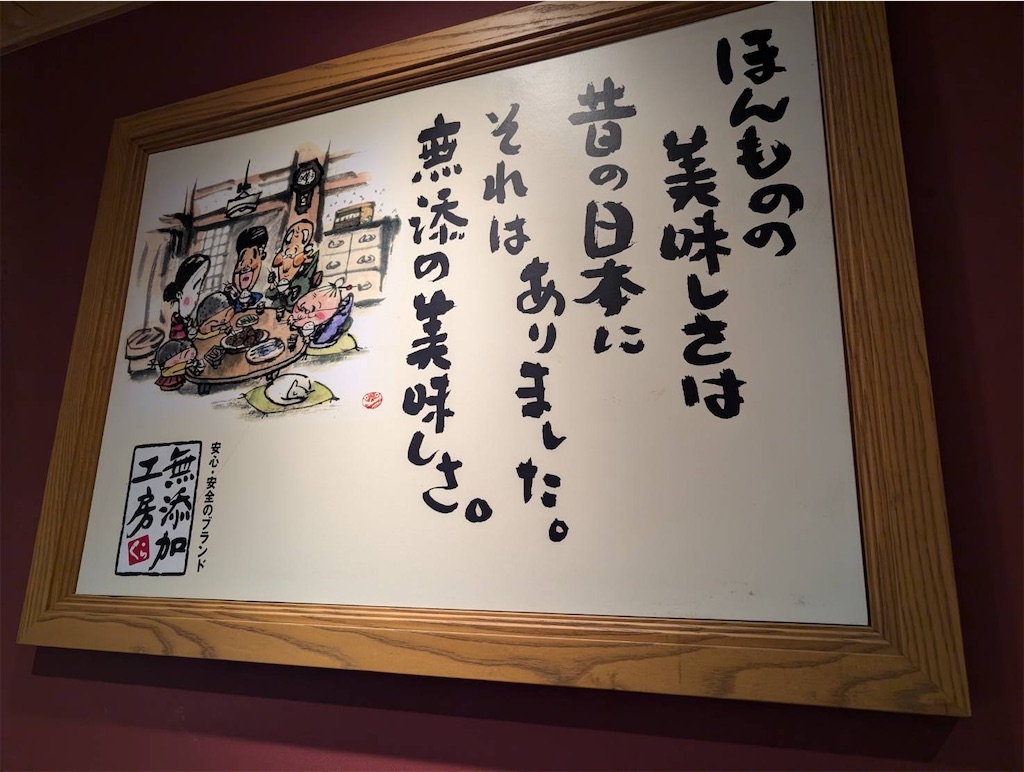 ほんものの
美味しさは
昔の日本に
それは
ありました。
無添の美味しさ。
安心・安全のブランド
無添加
工房
くら